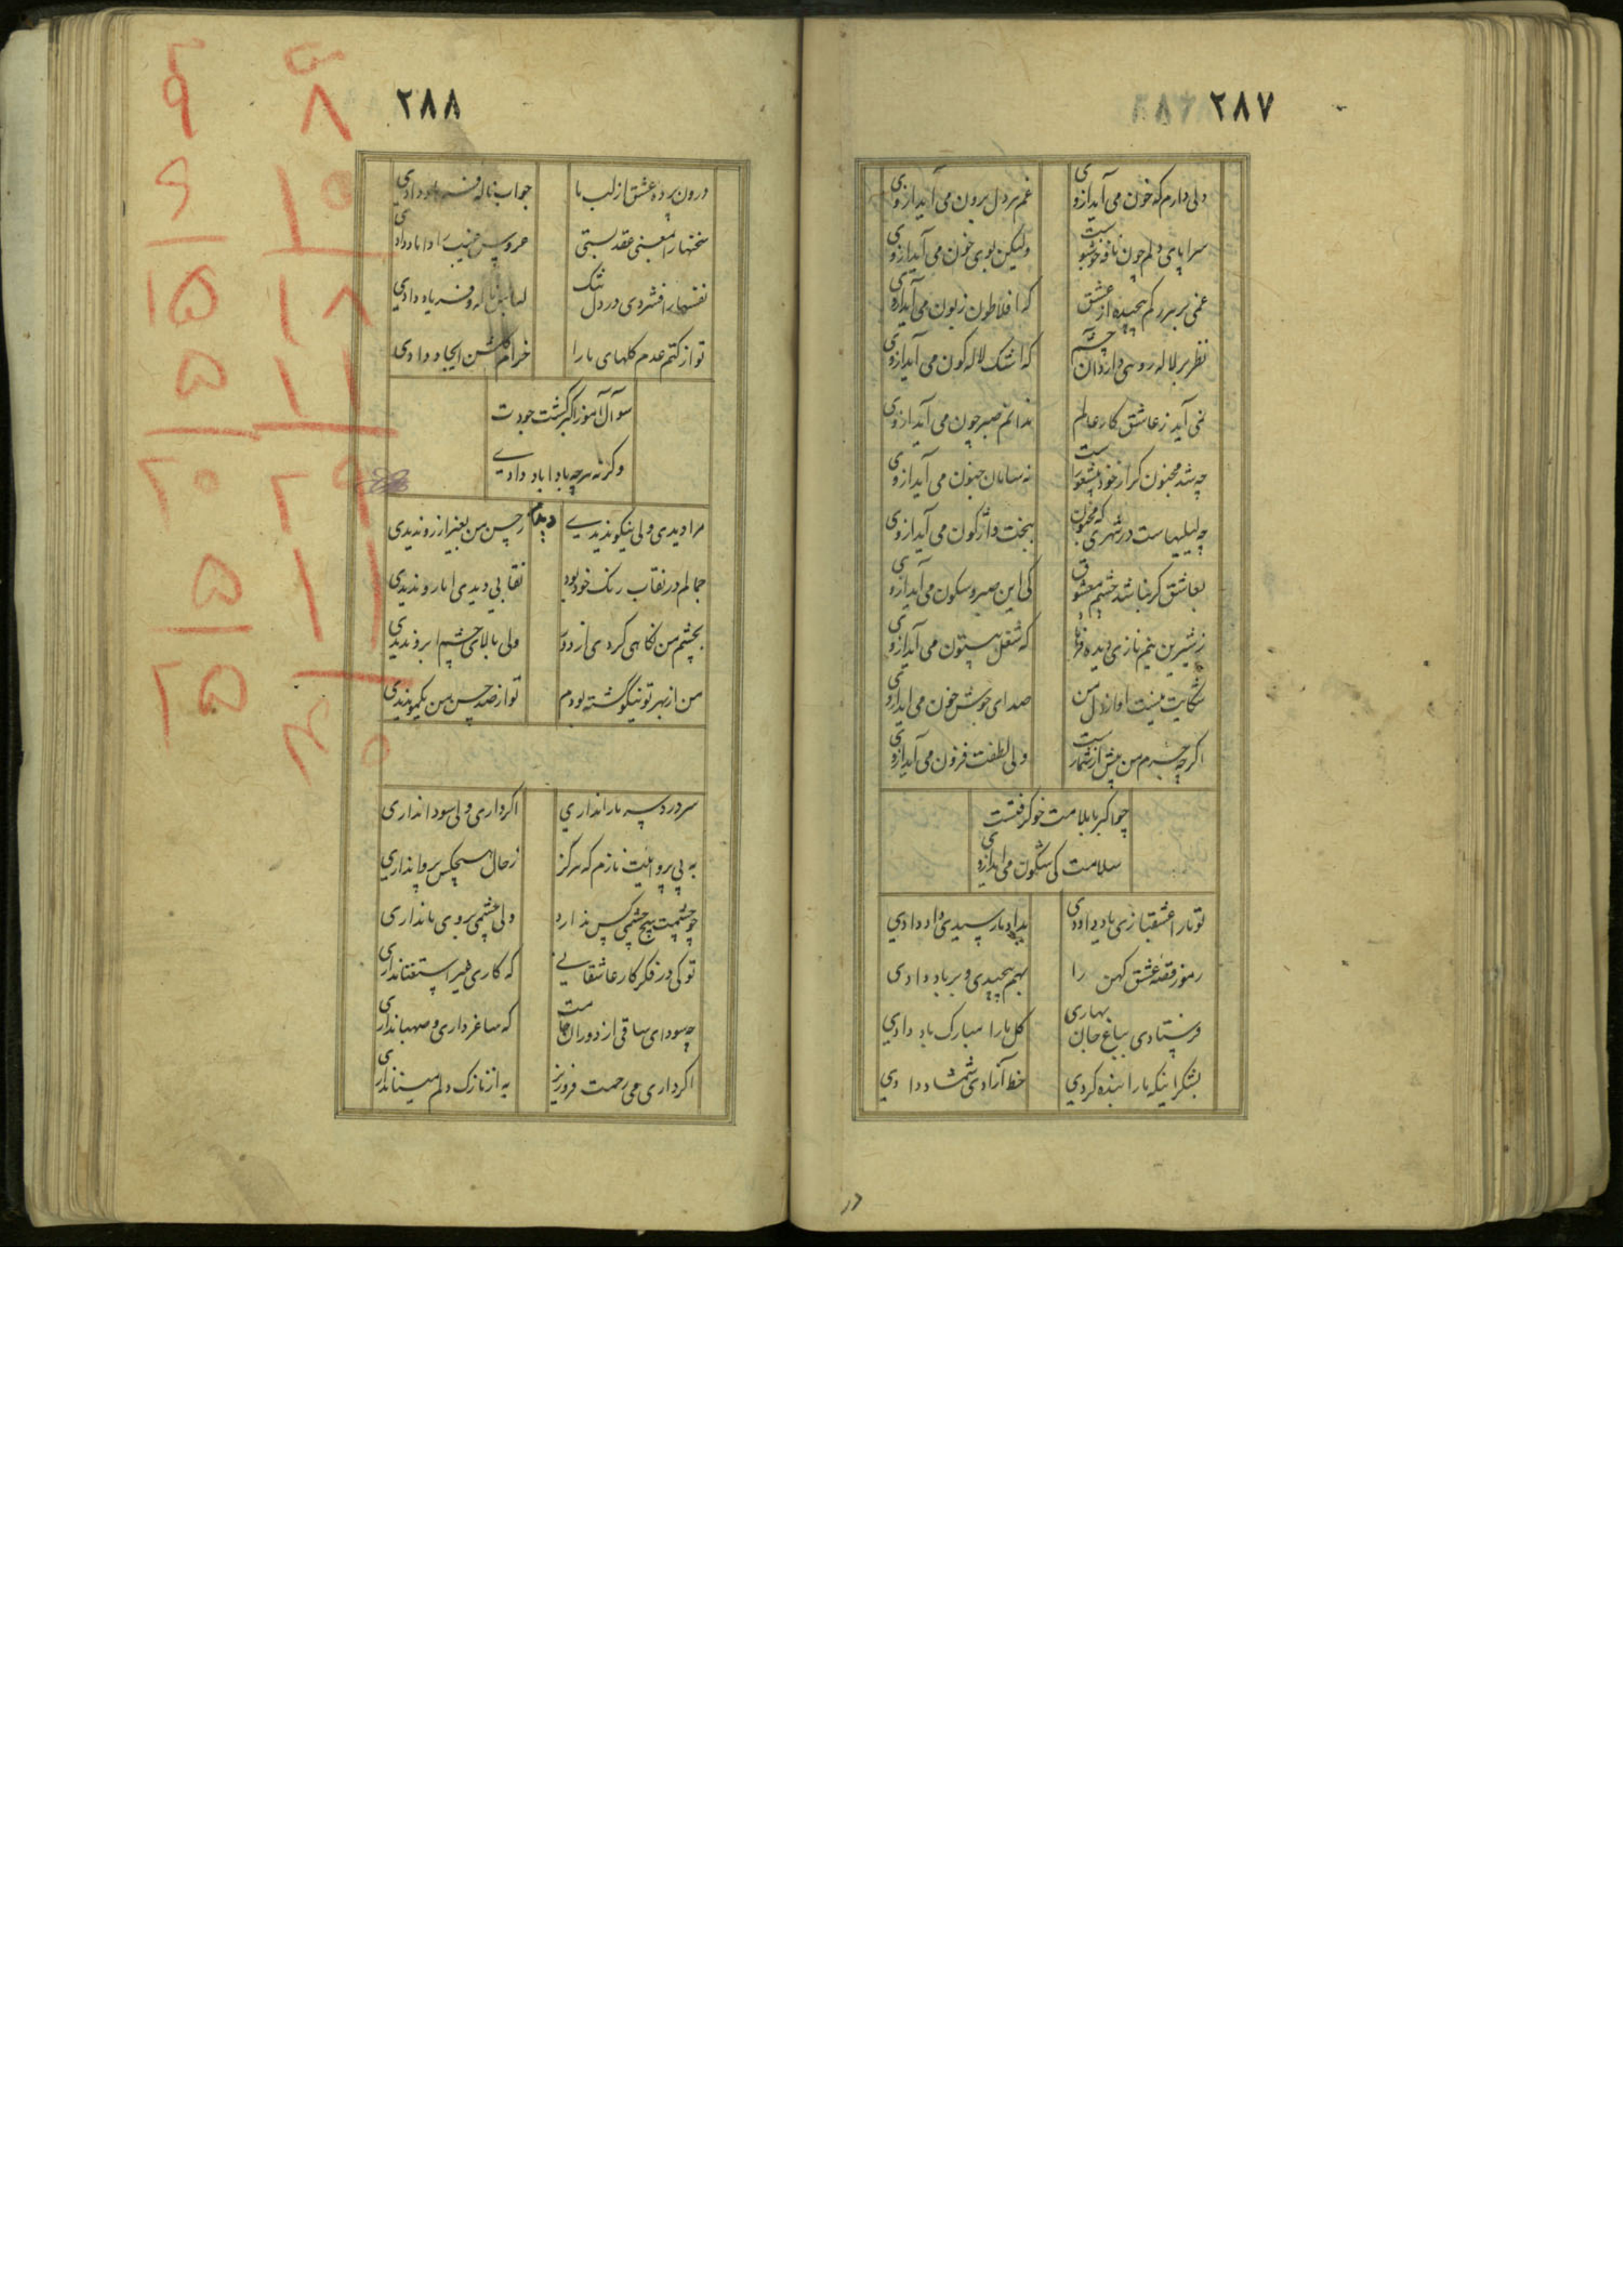 ۲۸۷
دلی دارم که خون می آید ازوی
غم هر دل برون می آید ازوی
سراپای دلم چون نافه خوشبوست
ولیکن بوی خون می آید ازوی
غمی بر هر رکم پیچیده از عشق
که افلاطون زبون می آید ازوی
نظر بر لاله روهی دارد آن چشم
که اشک لاله کون می آید ازوی
نمی آید ز عاشق کار عالم
ندانم صبر چون می آید ازوی
چه شد مجنون کر از خود بیشعورست
نه سامان جنون می آید ازوی
چه لیلیهاست در شهری که مجنون
بخت واژکون می آید ازوی
بعاشق کر نباشد چشم معشوق
کی این صبر و سکون می آید ازوی
ز شیرین نیم نازی دیده فرهاد
که شغل بیستون می آید ازوی
شکایت نیست اواز دل من
صدای جوش خون می اید ازوی
اکرچه جرم من بیش از شمارست
ولی لطفت فزون می آید ازوی
چو اکبر با بلا مت خو کرفتست
سلامت کی سکون می اید ازوی
تو ما را عشقبازی یاد دادی
بداد ما رسیدی داد دادی
رموز قصه عشق کهن را
بهم پیچیدی و بر باد دادی
فرستادی بباغ جان بهاری
کل ما را مبارک باد دادی
بشکر اینکه ما را بنده کردی
خط آزادی شمشاد دادی
۲۸۸
درون پرده عشق از لب ما
جواب ناله فرهاد دادی
سخنها را بمعنی عقد بستی
عروس غیب را داماد دادی
نفسها را فشردی در دل تنک
لها ناله و فریاد دادی
تو از کتم عدم کلهای ما را
خرام کلشن ایجاد دادی
سوآل آموز اکبر کشت جودت
وکرنه هرچه باداباد دادی
مرا دیدی ولی نیکو ندیدی
ز حسن من بغیر از رو ندیدی
جمالم در نقاب رنک خود بود
نقابی دیدی اما رو ندیدی
بچشم من نکاهی کردی از دور
ولی بالای چشم ابرو ندیدی
من از بهر تو نیکو کشته بودم
تو از صد حسن من یکمو ندیدی
سر درد سر ما را نداری
اکر داری ولی سودا نداری
به بی پرواییت نازم که هرکز
ز حال هیچکس پروا نداری
چو چشمت هیچ چشمی کس ندارد
ولی چشمی بروی ما نداری
تو کی در فکر کار عاشقانی
که کاری غیر استغنا نداری
چه سودای ساقی از دوران جامت
که ساغر داری و صهبا نداری
اکر داری می رحمت فروریز
به از نازک دلم مینا نداری